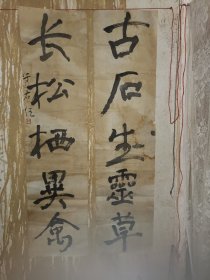 古石生靈草
长松栖異禽